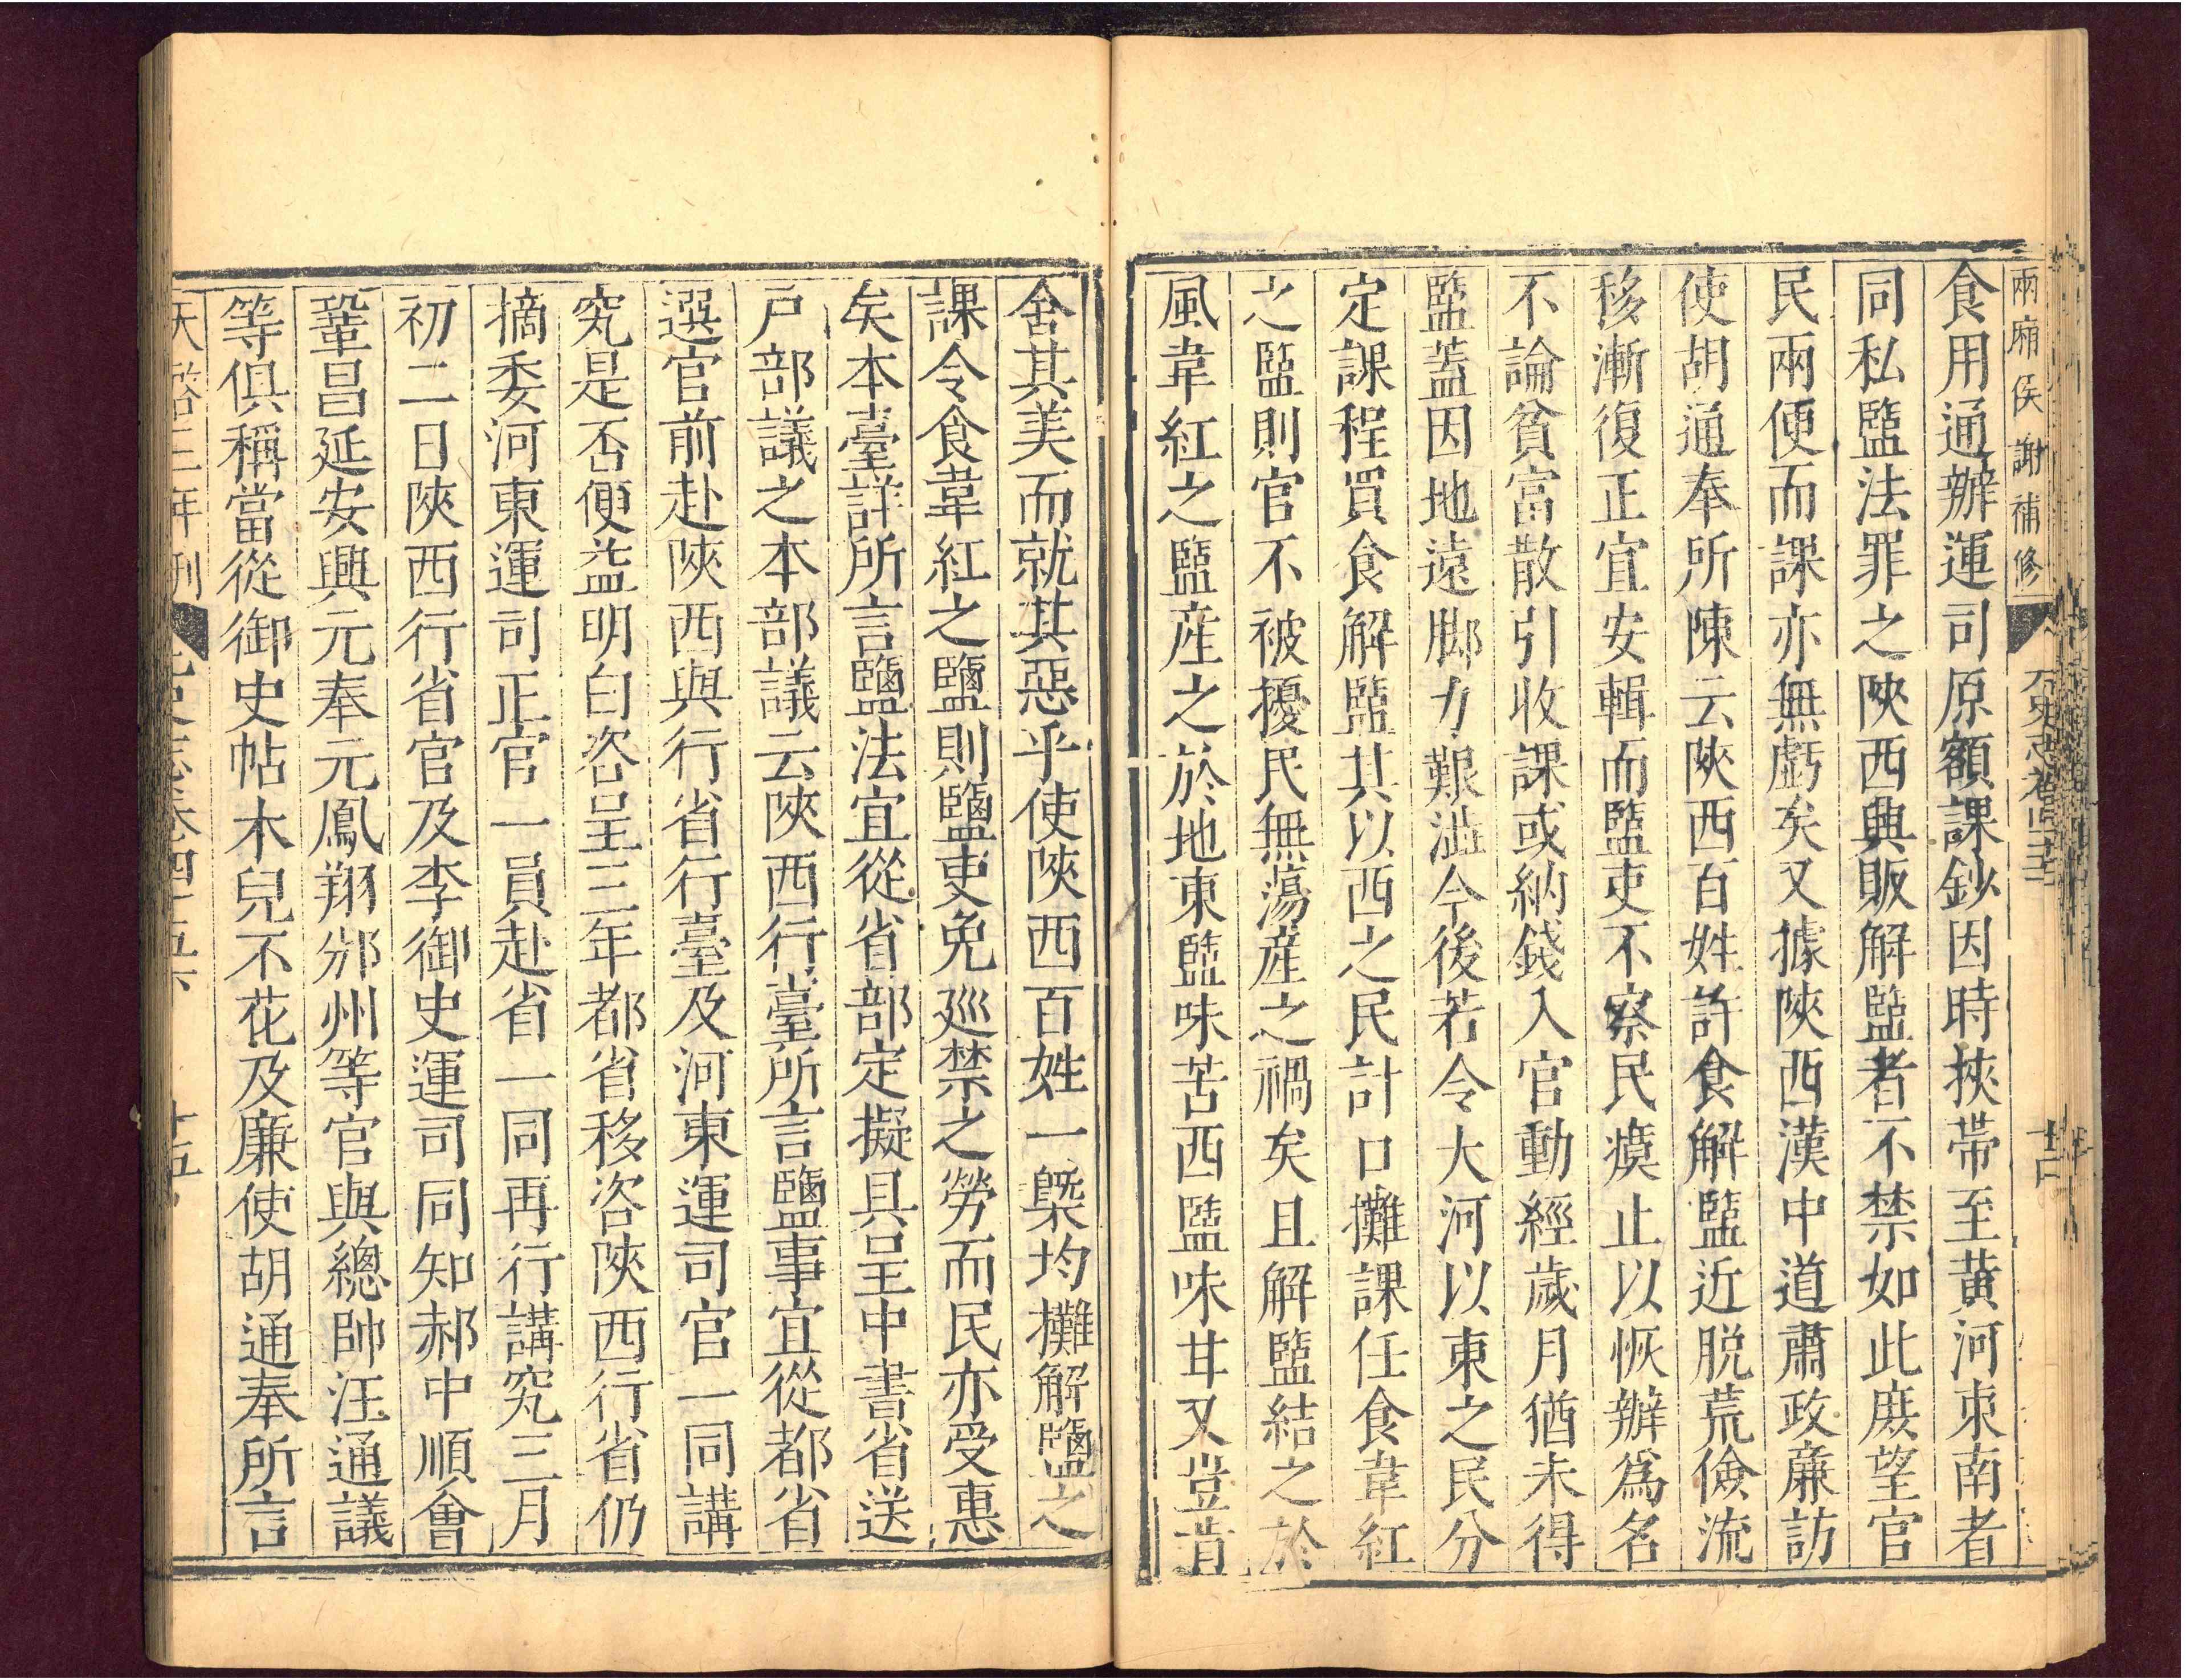 兩廂侯謝補修
食用通辦運司原額課鈔因時挾帶至黃河東南者
同私塩法罪之陜西興販解塩者不禁如此庻望官
民兩便而課亦無虧矣又據陜西漢中道肅政亷訪
使胡通奉所陳云陜西百姓許食解塩近脱荒儉流
移漸復正宜安輯而塩吏不察民瘼止以恢辦爲名
不論貧富散引收課或納錢入官動經歲月猶未得
塩蓋因地遠脚力艱澁今後若令大河以東之民分
定課程買食解塩其以西之民計口攤課任食韋紅
之塩則官不被擾民無蕩産之禍矣且解塩結之於
風韋紅之塩産之於地東塩味苦西塩味甘又豈肯
舍其美而就其惡乎使陜西百姓一槩均攤解鹽之
課令食韋紅之鹽則鹽吏免廵禁之勞而民亦受惠
矣本臺詳所言鹽法宜從省部定擬具呈中書省送
戸部議之本部議云陜西行臺所言鹽事宜從都省
選官前赴陜西與行省行臺及河東運司官一同講
究是否便益明白咨呈三年都省移咨陜西行省仍
摘委河東運司正官一員赴省一同再行講究三月
初二日陜西行省官及李御史運司同知郝中順會
鞏昌延安興元奉元鳳翔邠州等官與總帥汪通議
等俱稱當從御史帖木兒不花及廉使胡通奉所言
天啓三年刊 元史志卷四十五下 十五